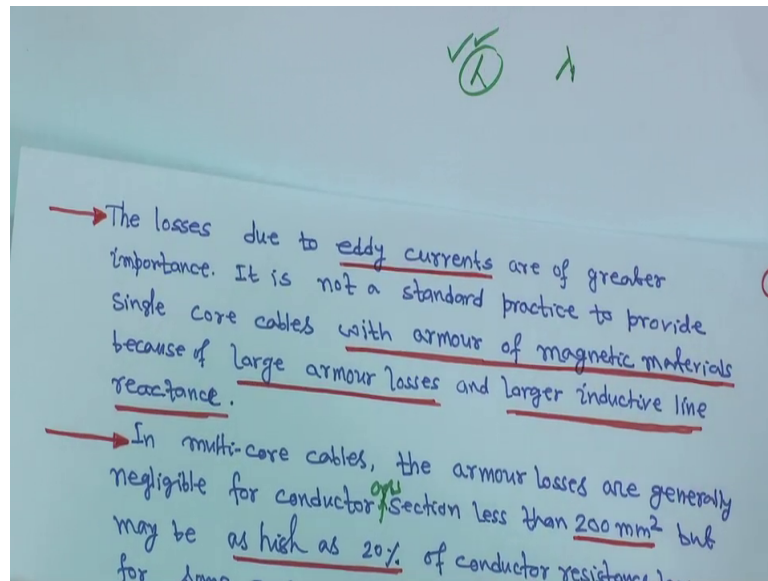 λ λ
The losses due to eddy currents are of greater
importance. It is not a standard practice to provide
single core cables with armour of magnetic materials
because of large armour losses and larger inductive line
reactance.
In multi-core cables, the armour losses are generally
negligible for conductor section less than 200 mm² but
may be as high as 20% of conductor resistance
for